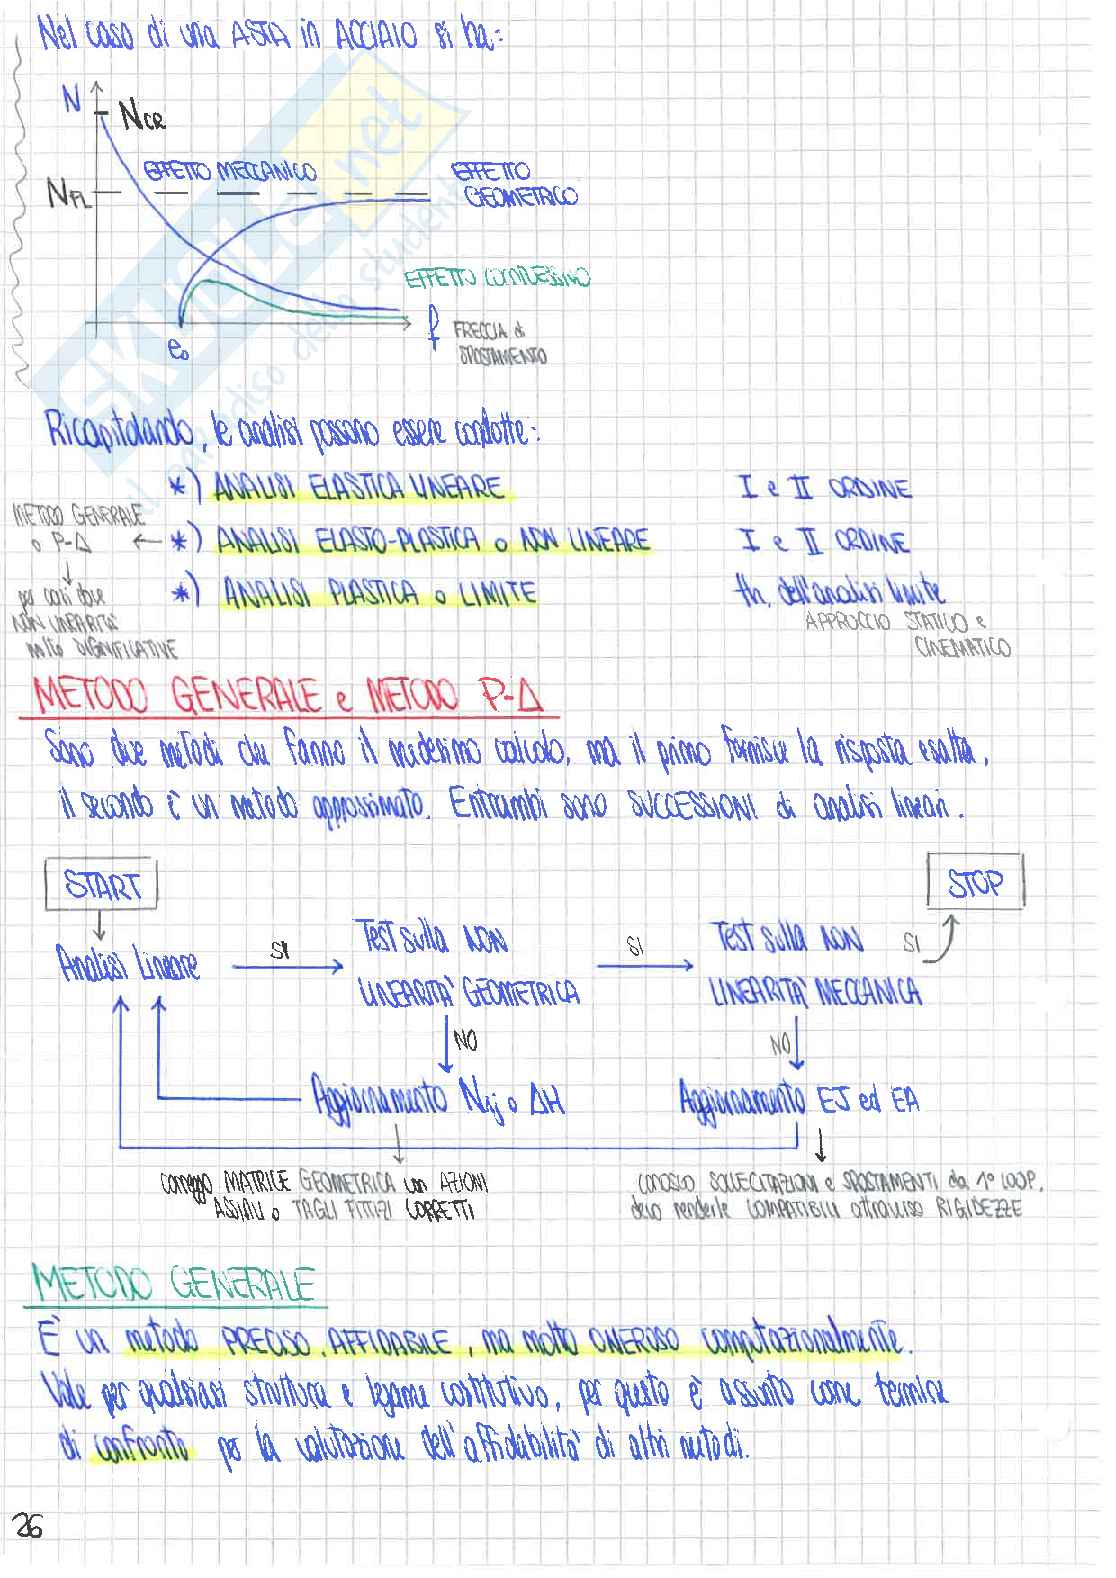 Nel caso di una ASTA in ACCIAIO si ha:
N
NCR
EFFETTO MECCANICO
EFFETTO GEOMETRICO
NFL
EFFETTO COMPLESSIVO
e₀
f
FRECCIA di SPOSTAMENTO
SKUOLA.net
il paradiso dello studente
Ricapitolando, le analisi possono essere condotte:
*) ANALISI ELASTICA LINEARE I e II ORDINE
METODO GENERALE o P-Δ ← *) ANALISI ELASTO-PLASTICA o NON LINEARE I e II ORDINE
*) ANALISI PLASTICA o LIMITE th. dell'analisi limite
per casi dove
NON LINEARITA'
molto SIGNIFICATIVE
APPROCCIO STATICO e
CINEMATICO
METODO GENERALE e METODO P-Δ
Sono due metodi che fanno il medesimo calcolo, ma il primo fornisce la risposta esatta,
il secondo è un metodo approssimato. Entrambi sono SUCCESSIONI di analisi lineari.
START
STOP
Analisi Lineare
SI
Test sulla NON
LINEARITA' GEOMETRICA
SI
Test sulla NON
LINEARITA' MECCANICA
SI
NO
NO
Aggiornamento Nij o ΔH
Aggiornamento EJ ed EA
correggo MATRICE GEOMETRICA con AZIONI
ASSIALI o TAGLI FITTIZI CORRETTI
conosco SOLLECITAZIONI e SPOSTAMENTI da 1° LOOP,
devo renderle COMPATIBILI attraverso RIGIDEZZE
METODO GENERALE
E' un metodo PRECISO, AFFIDABILE, ma molto ONEROSO computazionalmente.
Vale per qualsiasi struttura e legame costitutivo, per questo è assunto come termine
di confronto per la valutazione dell'affidabilità di altri metodi.
26